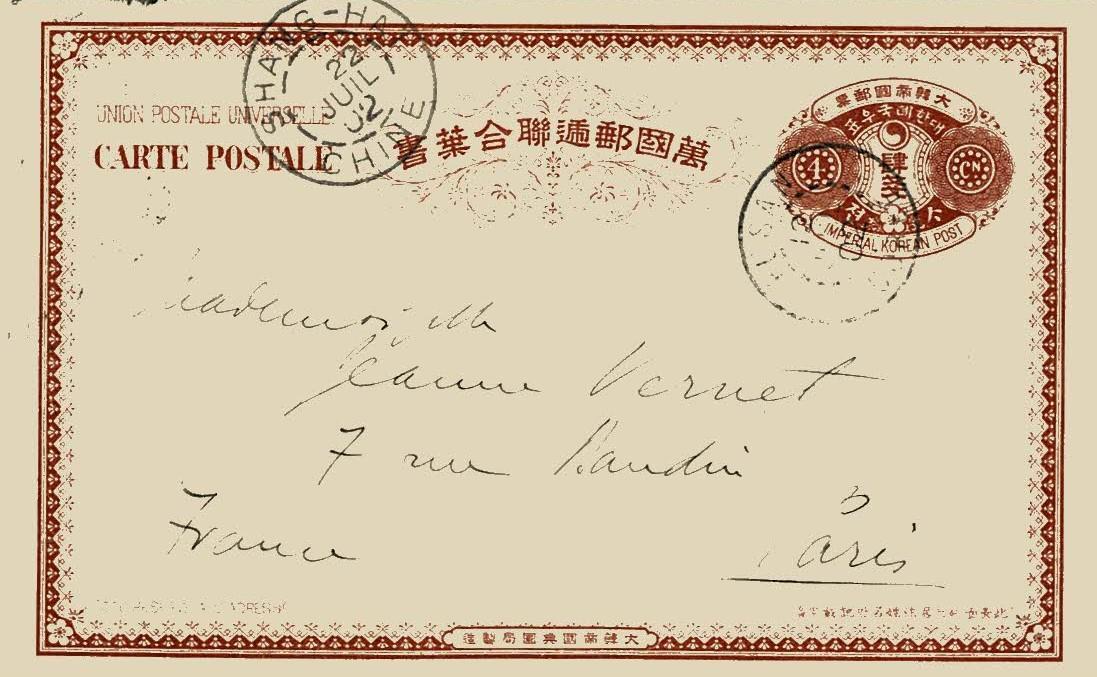 SHANG-HAI
22
JUIL
02
CHINE
UNION POSTALE UNIVERSELLE
CARTE POSTALE
萬國郵遞聯合葉書
大韓帝國郵票
대한뎨국우표
4
肆錢
CN.
IMPERIAL KOREAN POST
Mademoiselle
Jeanne Vernet
7 rue
France
Paris
大韓帝國典圜局製造